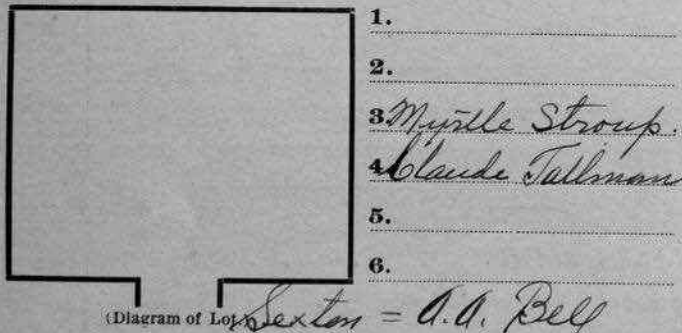 1.
2.
3. Myrtle Stroup.
4. Claude Tallman
5.
6.
(Diagram of Lot Sexton = A.A. Bell